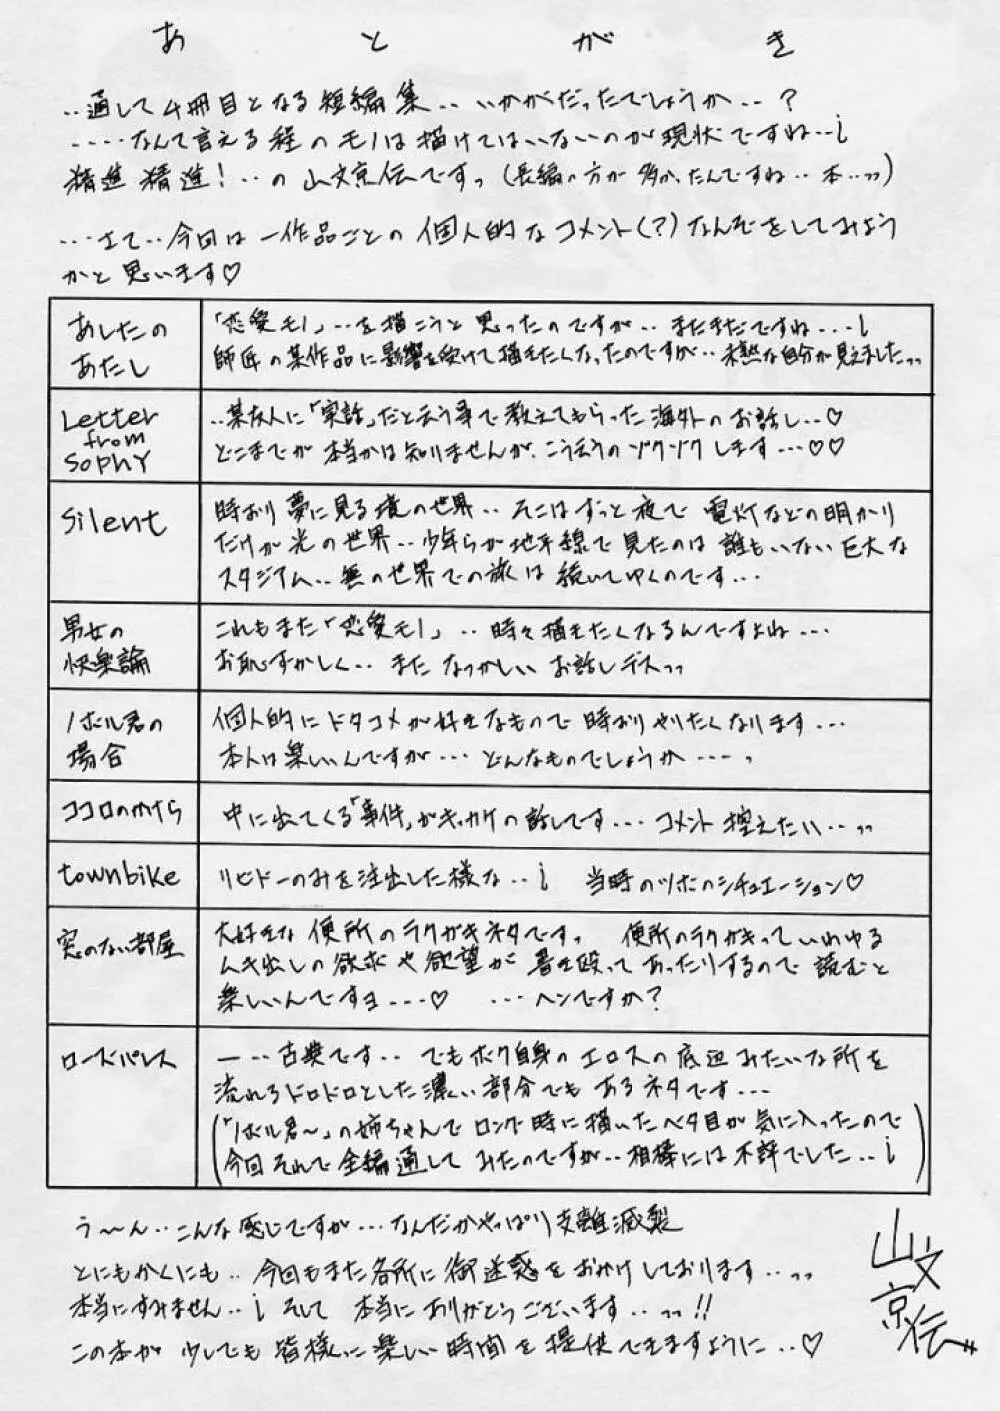 あとがき
‥通して4冊目となる短編集‥いかがだったでしょうか‥?
‥‥なんて言える程のモノは描けてはいないのが現状ですね‥¡
精進精進!‥の山文京伝ですっ(長編の方が多かったんですね‥本‥ッッ)
‥‥さて‥今回は一作品ごとの個人的なコメント(?)なんぞをしてみよう
かと思います♡
あしたの
あたし
「恋愛モノ」‥を描こうと思ったのですが‥まだまだですね‥¡
師匠の某作品に影響を受けて描きたくなったのですが‥未熟な自分が見えましたッッ
Letter
from
Sophy
‥某友人に「実話」だと云う事で教えてもらった海外のお話し‥♡
どこまでが本当かは知りませんが、こう云うのゾクゾクします‥♡♡
Silent
時おり夢に見る境の世界‥そこはずっと夜で電灯などの明かり
だけが光の世界‥少年らが地平線で見たのは誰もいない巨大な
スタジアム‥無の世界での旅は続いてゆくのです‥
男女の
快楽論
これもまた「恋愛モノ」‥時々描きたくなるんですよね‥
お恥ずかしく‥またなつかしいお話しデスッッ
ノボル君の
場合
個人的にドタコメが好きなもので時おりやりたくなります‥
本人は楽しいんですが‥どんなものでしょうか‥‥っ
ココロのかけら
中に出てくる「事件」がキッカケの話しです‥コメント控えたい‥ッッ
townbike
リビドーのみを注出した様な‥¡ 当時のツボのシチュエーション♡
窓のない部屋
大好きな便所のラクガキネタですっ 便所のラクガキっていわゆる
ムキ出しの欲求や欲望が書き殴ってあったりするので読むと
楽しいんですヨ‥♡ ‥ヘンですか?
ローズパレス
一‥古典です‥でもボク自身のエロスの底辺みたいな所を
流れるドロドロとした濃い部分でもあるネタです‥
(「ノボル君〜」の姉ちゃんでロング時に描いたベタ目が気に入ったので
今回それで全編通してみたのですが‥相棒には不評でした‥¡)
う〜ん‥こんな感じですが‥なんだかやっぱり支離滅裂
とにもかくにも‥今回もまた各所に御迷惑をおかけしております‥ッッ
本当にすみません‥¡そして本当にありがとうございます‥ッッ!!
この本が少しでも皆様に楽しい時間を提供できますように‥♡
山文
京伝